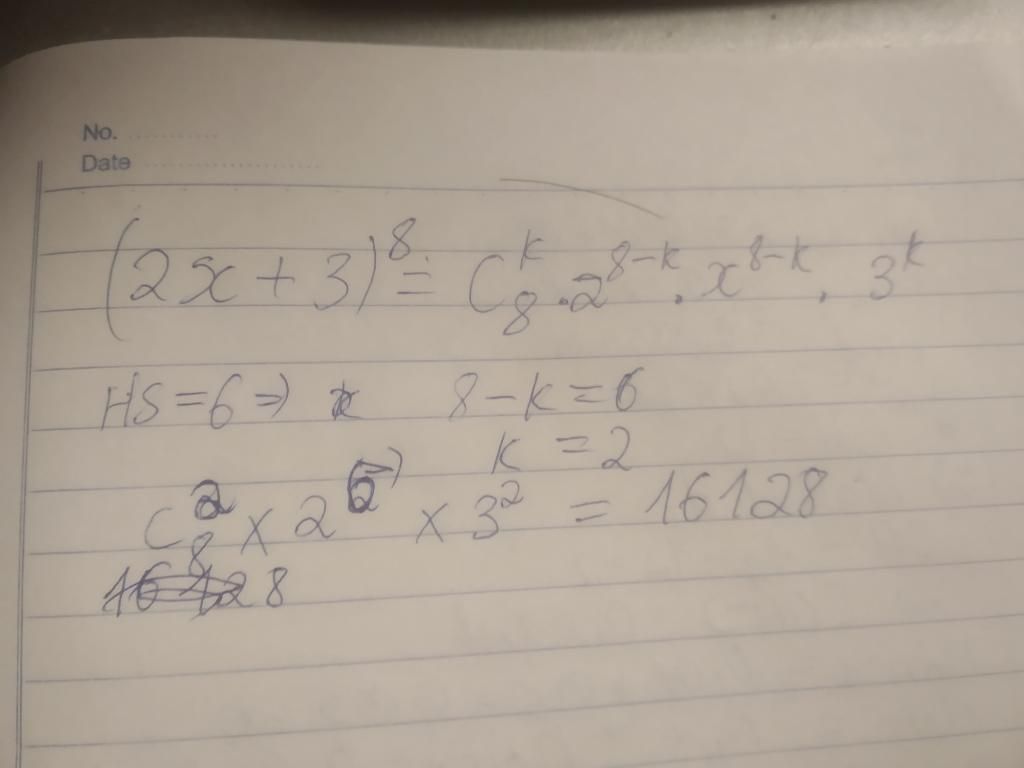 No. ............
Date ........................
(2x + 3)⁸ = C₈ᵏ . 2⁸⁻ᵏ . x⁸⁻ᵏ . 3ᵏ
HS = 6 => 8 - k = 6
k = 2
C₈² x 2⁶ x 3² = 16128